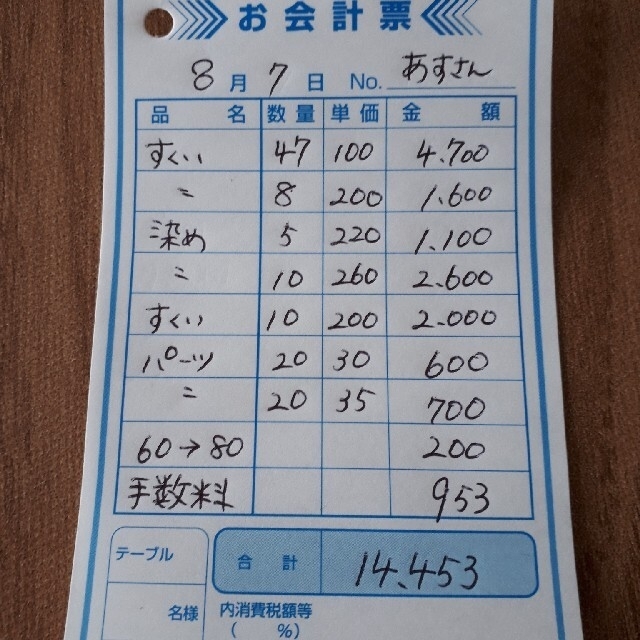 お会計票
8月7日 No. あすさん
品名 数量 単価 金額
すくい 47 100 4.700
〃 8 200 1.600
染め 5 220 1.100
〃 10 260 2.600
すくい 10 200 2.000
パーツ 20 30 600
〃 20 35 700
60→80 200
手数料 953
テーブル 合計 14.453
名様 内消費税額等
( %)